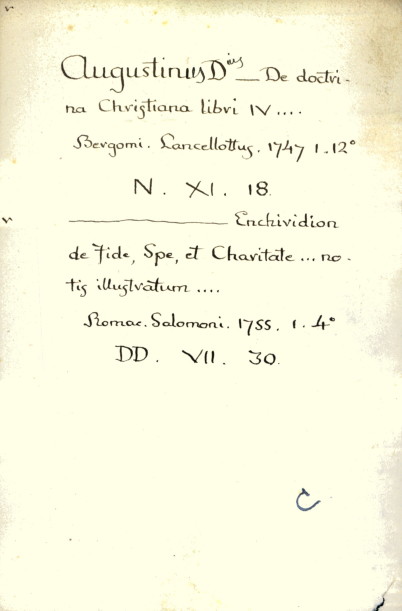 Augustinus Dius — De doctri-
na Christiana libri IV ....
Bergomi. Lancellottus. 1747 1.. 12°
N. XI. 18.
———— Enchiridion
de Fide, Spe, et Charitate ... no-
tis illustratum ....
Romae. Salomoni. 1755. 1. 4°
DD. VII. 30.
C